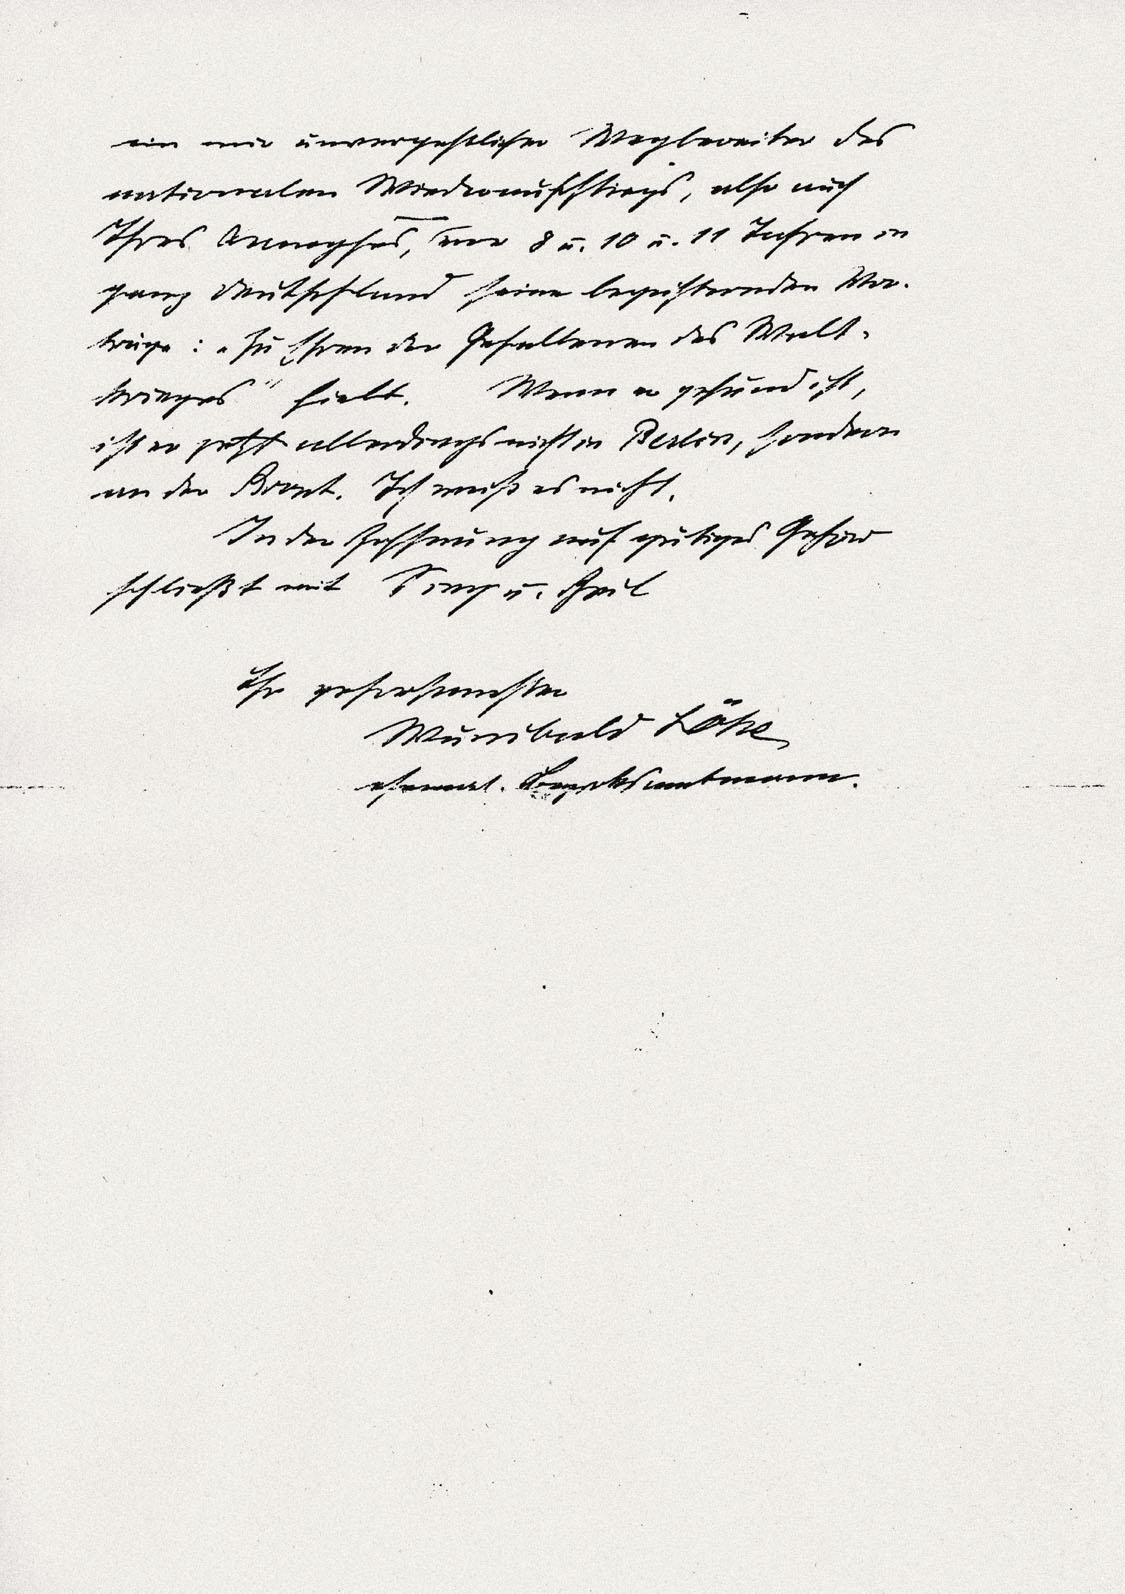 ein mir unvergeßlicher Wegbereiter des
nationalen Wiederaufstiegs, also auch
Ihres, vor 8 u. 10 u. 11 Jahren in
ganz Deutschland seine begeisternden Vor-
träge: „Zu Ehren der Gefallenen des Welt-
krieges" hielt. Wenn er gesund ist,
ist er jetzt allerdings nicht in Berlin, sondern
an der Front. Ich weiß es nicht.
In der Hoffnung auf gütiges Gehör
schließt mit Sieg u. Heil
Ihr gehorsamster
Wunibald Löhe
ehemal. Bezirksamtmann.